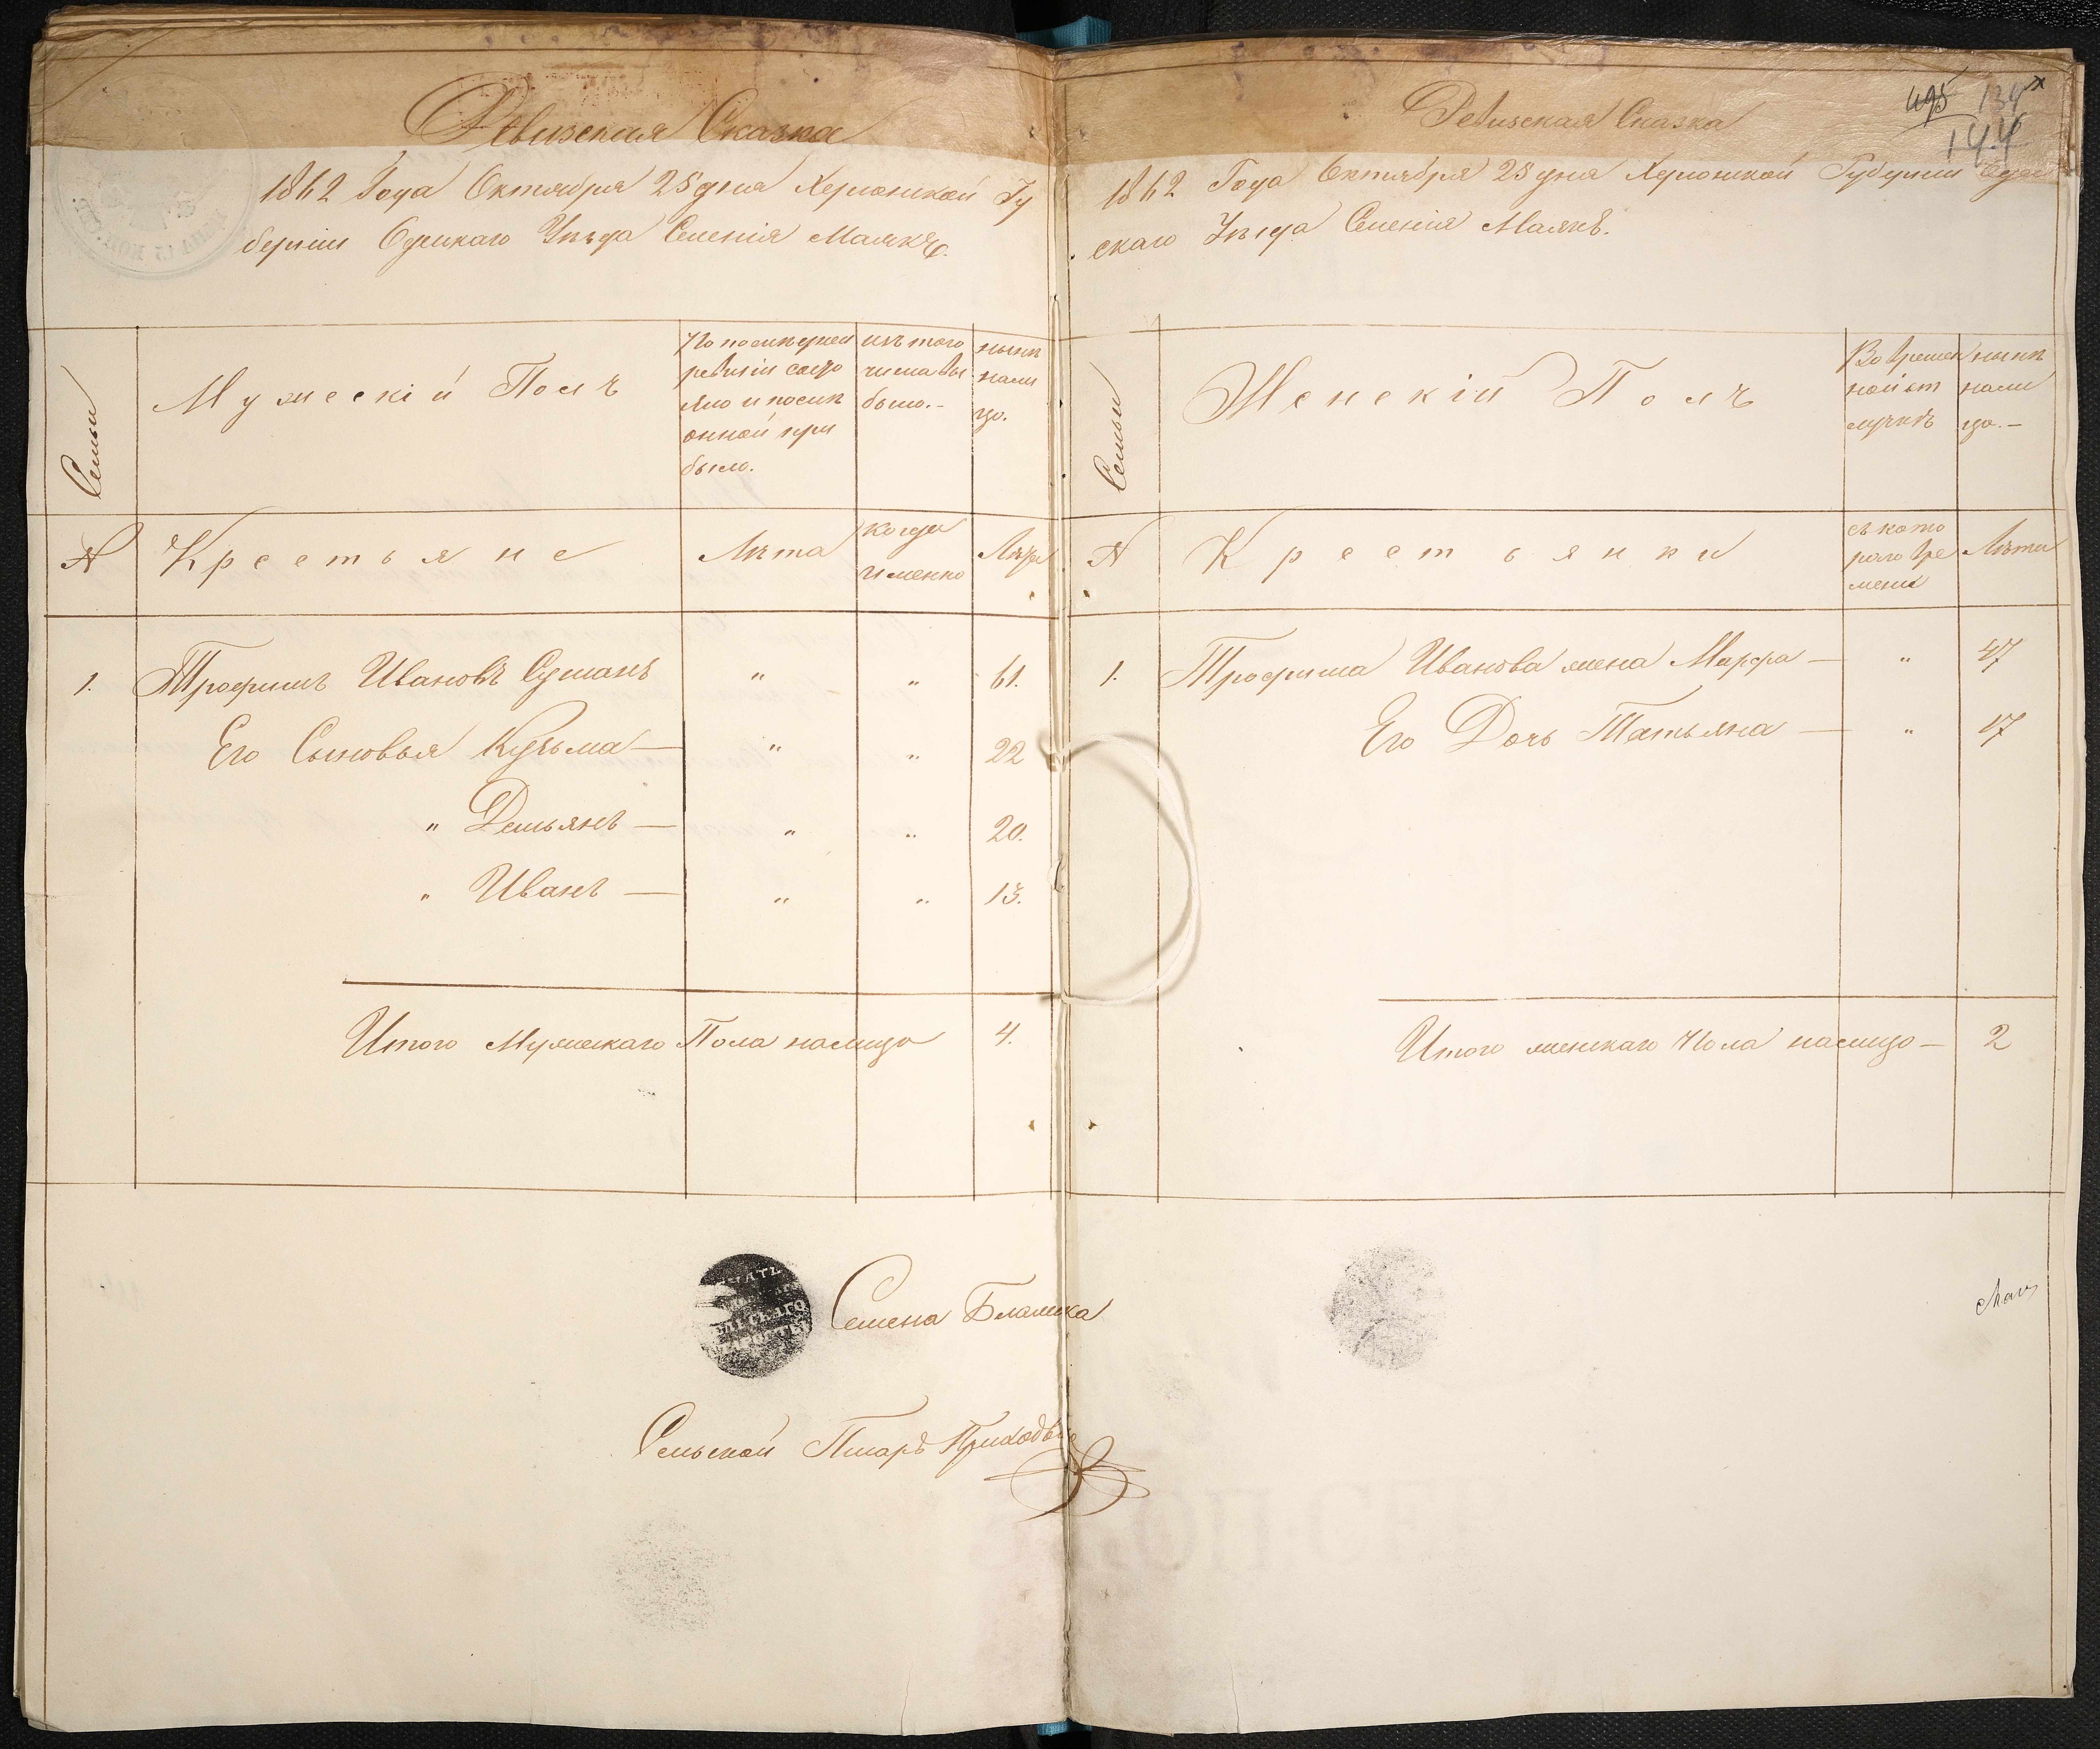 Ревизская Сказка
1862 Года Октября 25 дня Херсонской Гу
берніи Одескаго Уѣзда Селенія Маякъ.
Семьи
Мужескій Полъ
По послѣдней
ревизіи состо
яло и послѣ
онной при
было.
изъ того
числа вы
было.-
нынѣ
нали
цо.
N
Крестьяне
Лѣта
когда
именно
Лѣта
1. Трофимъ Ивановъ Сушанъ " " 61.
Его Сыновья Кузьма — " " 22
" Демьянъ — " " 20.
" Иванъ — " " 13.
Итого Мужескаго Пола налицо 4.
Семена
Сельской Писарь Приходько
495 134
144
Ревизская Сказка
1862 Года Октября 25 дня Херсонской Губерніи Одес
скаго Уѣзда Селенія Маякъ.
Семьи
Женскій Полъ
Во времен
ной от
лучкѣ
нынѣ
нали
цо.—
N
Крестьянки
съ кото
раго вре
мени
Лѣта
1. Трофима Иванова жена Марфа — " 47
Его Дочь Татьяна — " 17
Итого женскаго Пола налицо — 2